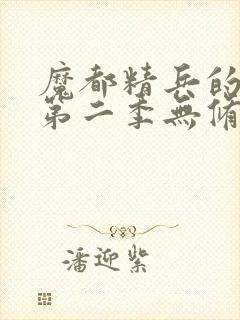 魔都精兵的
第二季無脩
潘迎紫